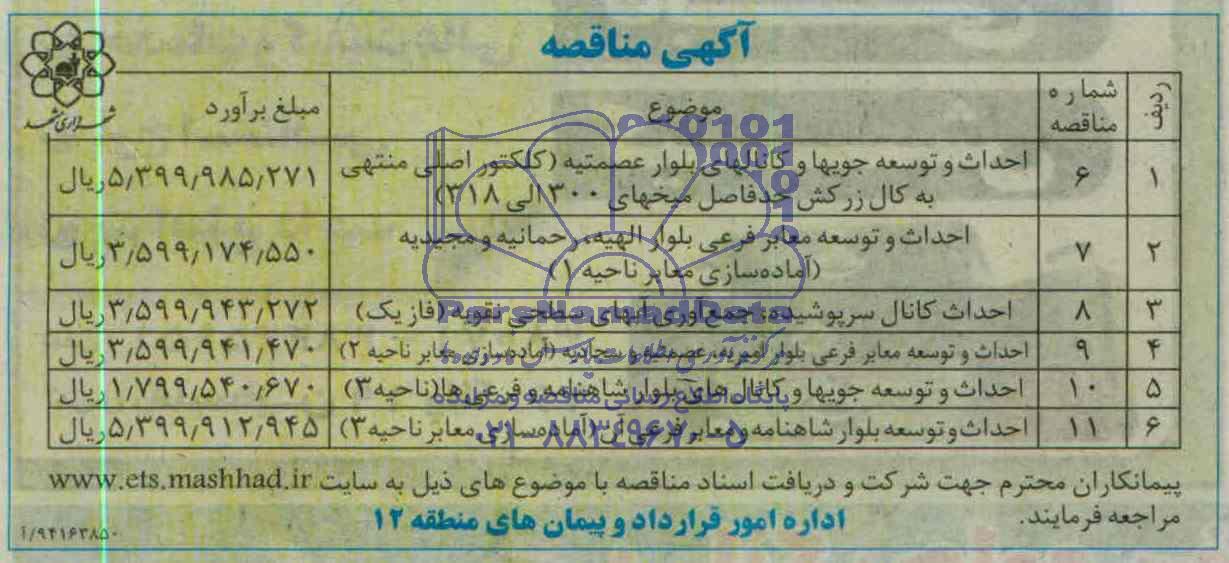 آگهی مناقصه
شهرداری مشهد
ردیف شماره مناقصه موضوع مبلغ برآورد
۱ ۶ احداث و توسعه جویها و کانالهای بلوار عصمتیه (کلکتور اصلی منتهی
به کال زرکش حدفاصل میخهای ۳۰۰ الی ۳۱۸) ۵,۳۹۹,۹۸۵,۲۷۱ ریال
۲ ۷ احداث و توسعه معابر فرعی بلوار الهیه، رحمانیه و مجیدیه
(آماده‌سازی معابر ناحیه ۱) ۳,۵۹۹,۱۷۴,۵۵۰ ریال
۳ ۸ احداث کانال سرپوشیده، جمع‌آوری آبهای سطحی نقویه (فاز یک) ۳,۵۹۹,۹۴۳,۲۷۲ ریال
۴ ۹ احداث و توسعه معابر فرعی بلوار امیریه، عصمتیه و سجادیه (آماده‌سازی معابر ناحیه ۲) ۳,۵۹۹,۹۴۱,۴۷۰ ریال
۵ ۱۰ احداث و توسعه جویها و کانال های بلوار شاهنامه و فرعی ها (ناحیه ۳) ۱,۷۹۹,۵۴۰,۶۷۰ ریال
۶ ۱۱ احداث و توسعه بلوار شاهنامه و معابر فرعی آن (آماده‌سازی معابر ناحیه ۳) ۵,۳۹۹,۹۱۲,۹۴۵ ریال
پیمانکاران محترم جهت شرکت و دریافت اسناد مناقصه با موضوع های ذیل به سایت www.ets.mashhad.ir
مراجعه فرمایند.
اداره امور قرارداد و پیمان های منطقه ۱۲
۹۴۱۶۳۸۵۰/آ
ParsNamadData
پایگاه اطلاع رسانی مناقصه و مزایده
۰۲۱-۸۸۳۴۹۶۷۰-۵